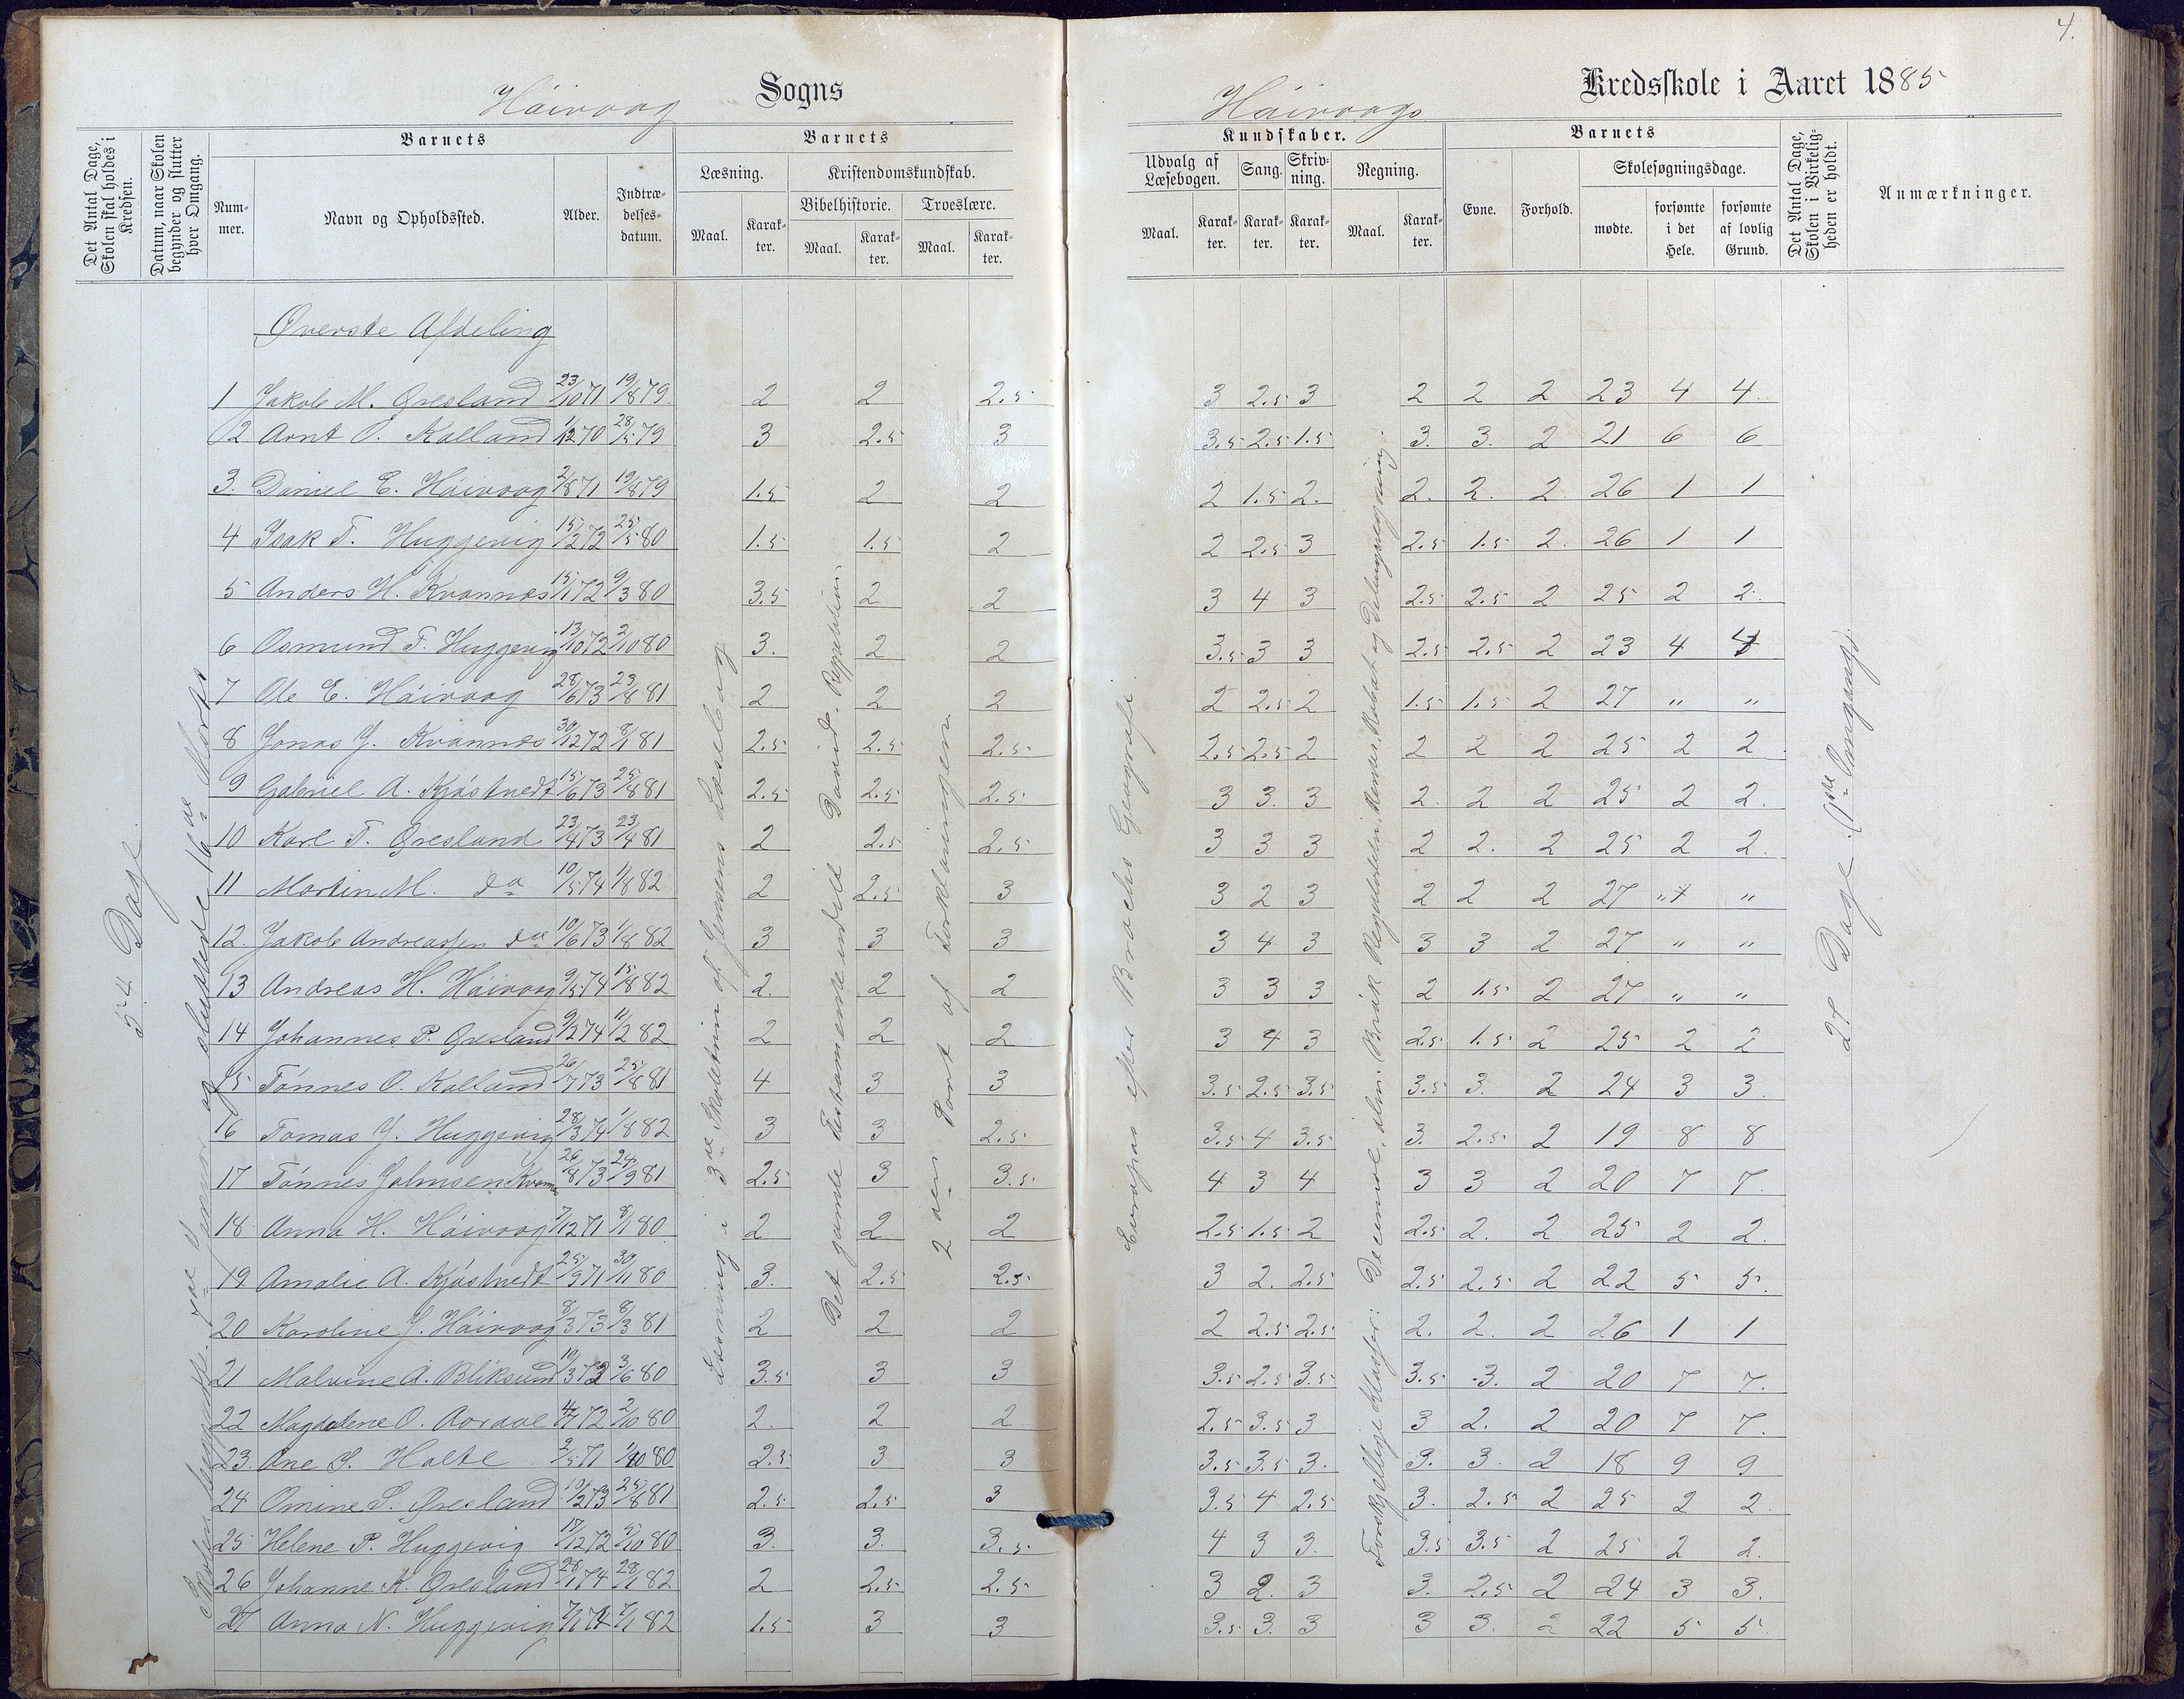 4.
Håivaag Sogns
Håivaags Kredsskole i Aaret 1885
Det Antal Dage, Skolen skal holdes i Kredsen.
Datum, naar Skolen begynder og slutter hver Omgang.
Barnets
Num-mer.
Navn og Opholdssted.
Alder.
Indtræ-delses-datum.
Barnets
Læsning.
Maal.
Karak-ter.
Kristendomskundskab.
Bibelhistorie.
Maal.
Karak-ter.
Troeslære.
Maal.
Karak-ter.
Kundskaber.
Udvalg af Læsebogen.
Maal.
Karak-ter.
Sang.
Karak-ter.
Skriv-ning.
Karak-ter.
Regning.
Maal.
Karak-ter.
Barnets
Evne.
Forhold.
Skolesøgningsdage.
mødte.
forsømte i det Hele.
forsømte af lovlig Grund.
Det Antal Dage, Skolen i Virkelig-heden er holdt.
Anmærkninger.
Øverste Afdeling
54 Dage
Skolen begyndte 7de Januar og sluttede 16de Marts
Læsning i 3die Skoletrin af Jensens Læsebog
Det gamle Testamente indtil David. Repetition.
2den Part af Forklaringen
Europas efter Brochs Geografi.
Forskjellige Klasser: Decimal, alm. Brøk Reguladetri, Renter, Rabat og Delingsregning.
27 Dage. (1ste Omgang).
1 Jakob M. Øresland 23/10 71 19/8 79. 2 2 2.5 3 2.5 3 2 2 2 23 4 4.
2 Arnt O. Kalland 1/12 70 28/5 79 3 2.5 3 3.5 2.5 1.5 3. 3. 2 21 6 6
3. Daniel E. Håivaag 2/8 71 19/8 79 1.5 2 2 2 1.5 2. 2. 2. 2. 26 1 1
4 Isak T. Huggevig 15/2 72 25/5 80 1.5 1.5 2 2 2.5 3 2.5 1.5 2. 26 1 1
5 Anders H. Kvannes 15/1 72 9/3 80 3.5 2 2 3 4 3 2.5 2.5 2 25 2 2.
6 Osmund T. Huggevig 13/10 72 2/10 80 3. 2 2 3.5 3 3 2.5 2.5 2 23 4 4
7 Ole E. Håivaag 28/6 73 23/8 81 2 2 2 2 2.5 2 1.5 1.5 2 27 " "
8 Jonas J. Kvannes 30/12 72 8/1 81 2.5 2.5 2.5 2.5 2.5 2 2 2 2 25 2 2
9 Gabriel A. Kjøstvedt 15/6 73 25/8 81 2.5 2.5 2.5 3 3. 3 2. 2 2 25 2 2.
10 Karl T. Øresland 23/4 73 23/4 81 2 2.5 2.5 3 3 3 2 2. 2 25 2 2.
11 Martin M. do 10/5 74 1/8 82 2 2.5 3 3 2 3 2 2 2 27 " "
12. Jakob Andreassen do 10/6 73 1/8 82 3 3 3 3 4 3 3 3 2 27 " "
13 Andreas H. Håivaag 9/5 74 15/8 82 2. 2 2 3 3 3 2 1.5 2 27 " "
14 Johannes P. Øresland 9/2 74 11/2 82 2 2 2 3 4 3 2.5 1.5 2 25 2 2
15 Tønnes O. Kalland 26/7 73 25/8 81 4 3 3 3.5 2.5 3.5 3.5 3. 2 24 3 3
16 Tomas J. Huggevig 28/3 74 1/8 82 3 3 2.5 3.5 4 3.5 3. 2.5 2 19 8 8
17 Tønnes Jolmsen Kvannes 26/8 73 24/9 81 2.5 3 3.5 4 3 4 3 3 2 20 7 7.
18 Anna H. Håivaag 7/12 71 8/1 80 2 2 2 2.5 1.5 2 2.5 2. 2 25 2 2.
19 Amalie A. Kjøstvedt 25/9 71 30/11 80 3. 2.5 2.5 3 2. 2.5 2.5 2.5 2 22 5 5.
20 Karoline J. Håivaag 8/3 73 8/3 81 2 2 2 2 2.5 2.5 2. 2. 2 26 1 1
21 Malvine A. Bliksund 10/3 72 3/6 80 3.5 3 3 3.5 2.5 3.5 3.5 3. 2 20 7 7.
22 Magdalene O. Aaraae 4/7 72 2/10 80 2. 2 2 2.5 3.5 3 3 2. 2 20 7 7.
23. Ane S. Holte 2/5 71 1/10 80 2.5 3 3 3.5 3.5 3. 3. 3. 2 18 9 9
24 Omine S. Øresland 10/2 73 25/8 81 2.5 2.5 3 3.5 4 2.5 3. 2.5 2 25 2 2
25 Helene P. Huggevig 17/12 72 5/10 80 3. 3. 3.5 4 3 3. 3.5 3.5 2 25 2 2.
26 Johanne K. Øresland 28/1 74 28/1 82 2 2.5 2.5 3 2. 3 3. 2.5 2 24 3 3.
27 Anna N. Huggevig 7/1 74 7/1 82 1.5 3 3 3.5 3. 3 3 3. 2 22 5 5